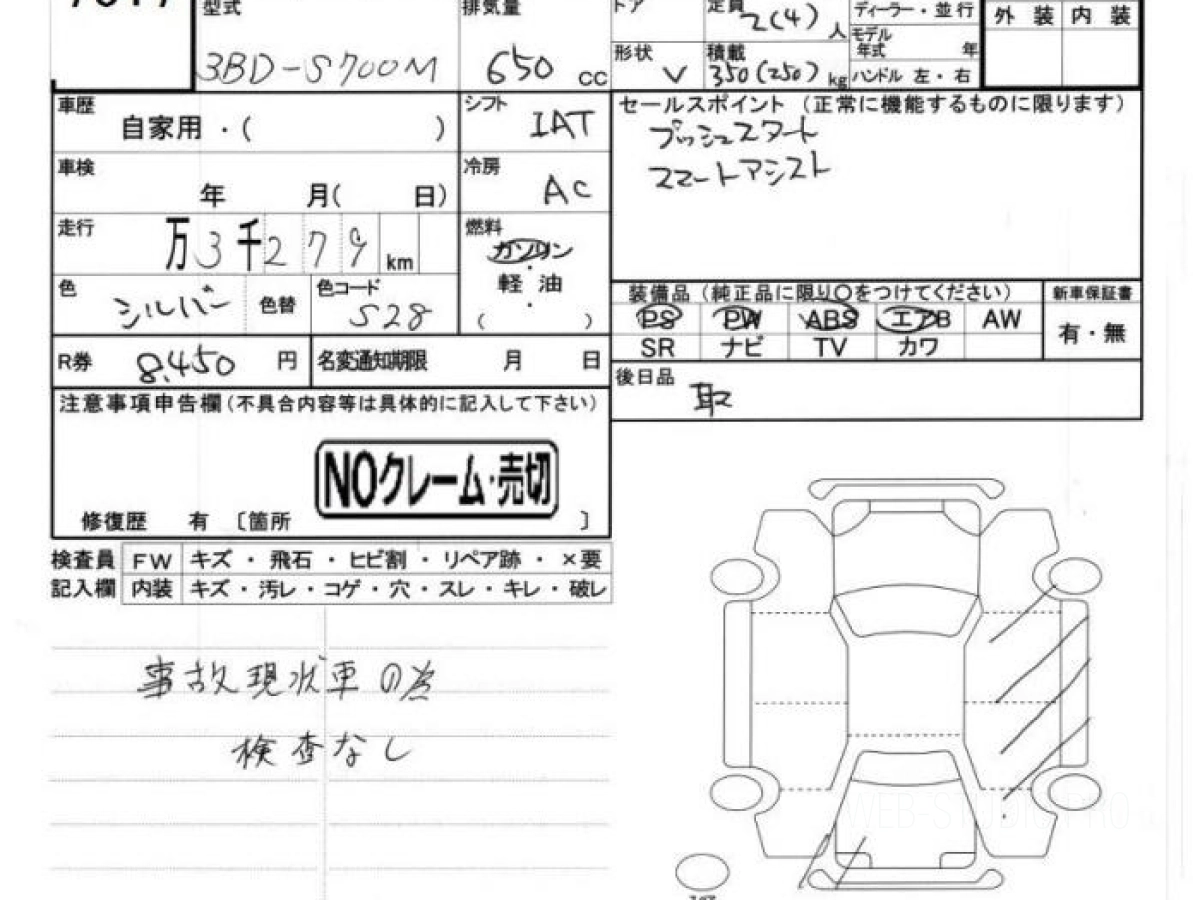 型式 排気量 ドア 定員 2(4) 人 ディーラー・並行 外装 内装
モデル年式 年
3BD-S700M 650 cc 形状 V 積載 350(250) kg ハンドル 左・右
車歴 自家用・( ) シフト IAT セールスポイント (正常に機能するものに限ります)
プッシュスタート
車検 年 月( 日) 冷房 AC スマートアシスト
走行 万 3 千 2 7 9 km 燃料 ガソリン
・
軽油
・
( )
色 シルバー 色替 色コード S28 装備品(純正品に限り〇をつけてください) 新車保証書
PS PW ABS エアB AW 有・無
SR ナビ TV カワ
R券 8,450 円 名変通知期限 月 日
後日品 取
注意事項申告欄(不具合内容等は具体的に記入して下さい)
NOクレーム・売切
修復歴 有 〔箇所 〕
検査員 FW キズ・飛石・ヒビ割・リペア跡・×要
記入欄 内装 キズ・汚レ・コゲ・穴・スレ・キレ・破レ
事故現状車の為
検査なし
WEB-STUDIO.PRO